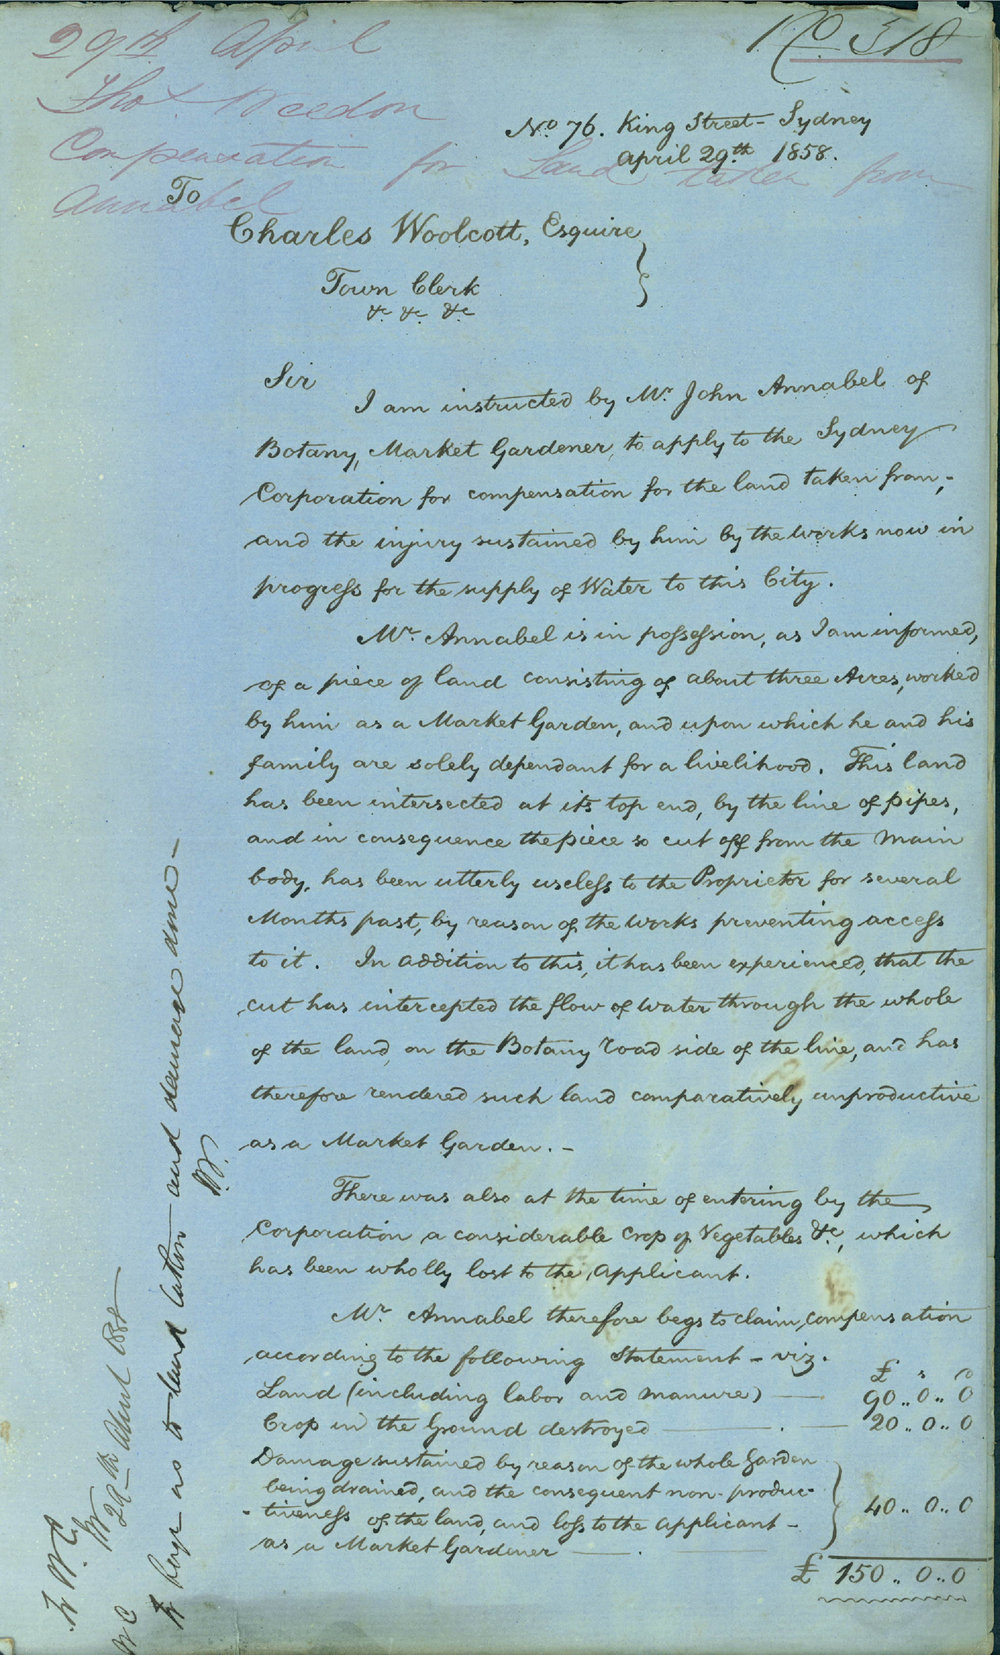 29th April
No 318
Thos Weedon
Compensation for Land taken from
Annabel
No 76. King Street - Sydney
April 29th 1858.
To
Charles Woolcott, Esquire
Town Clerk
&c &c &c
Sir
I am instructed by Mr John Annabel of
Botany, Market Gardener, to apply to the Sydney
Corporation for compensation for the land taken from,-
and the injury sustained by him by the works now in
progress for the supply of Water to this City.
Mr Annabel is in possession, as I am informed,
of a piece of land consisting of about three Acres, worked
by him as a Market Garden, and upon which he and his
family are solely dependant for a livelihood. This land
has been intersected at its top end, by the line of pipes,
and in consequence the piece so cut off from the main
body, has been utterly useless to the Proprietor for several
Months past, by reason of the works preventing access
to it. In addition to this, it has been experienced, that the
cut has intercepted the flow of water through the whole
of the land, on the Botany road side of the line, and has
therefore rendered such land comparatively unproductive
as a Market Garden. -
There was also at the time of entering by the
Corporation a considerable Crop of Vegetables &c, which
has been wholly lost to the Applicant.
Mr Annabel therefore begs to claim, compensation
according to the following Statement - viz.
£ s D
Land (including labor and manure) — 90.. 0.. 0
Crop in the Ground destroyed — 20.. 0.. 0
Damage sustained by reason of the whole Garden
being drained, and the consequent non-produc-
-tiveness of the land, and loss to the applicant -
as a Market Gardener — 40.. 0.. 0
£ 150.. 0.. 0
as to land taken and damage done -
29th April 1858